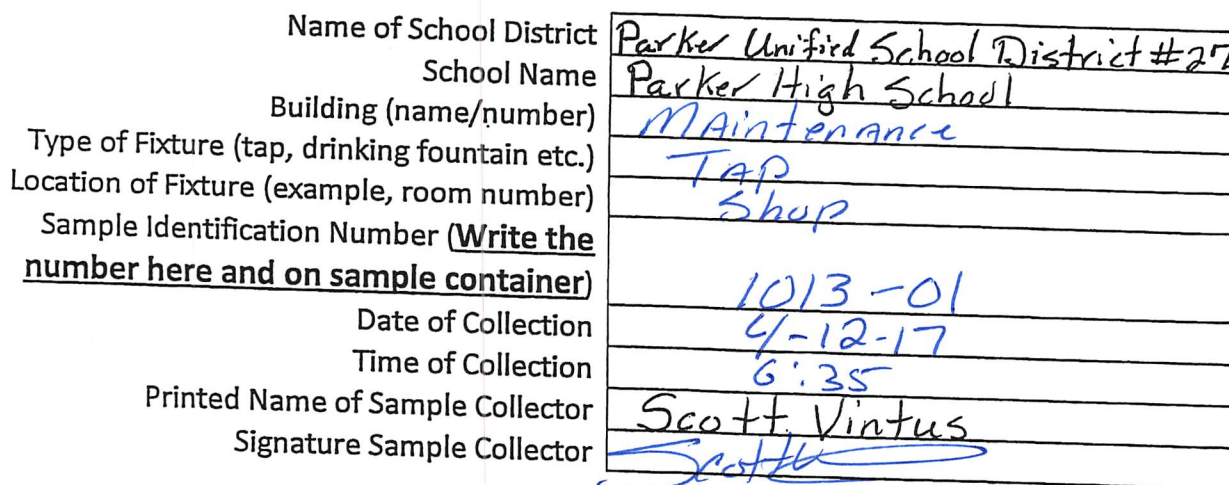 Name of School District Parker Unified School District #27
School Name Parker High School
Building (name/number) MAintenAnce
Type of Fixture (tap, drinking fountain etc.) TAP
Location of Fixture (example, room number) Shop
Sample Identification Number (Write the
number here and on sample container) 1013-01
Date of Collection 4-12-17
Time of Collection 6:35
Printed Name of Sample Collector Scott Vintus
Signature Sample Collector Scott V